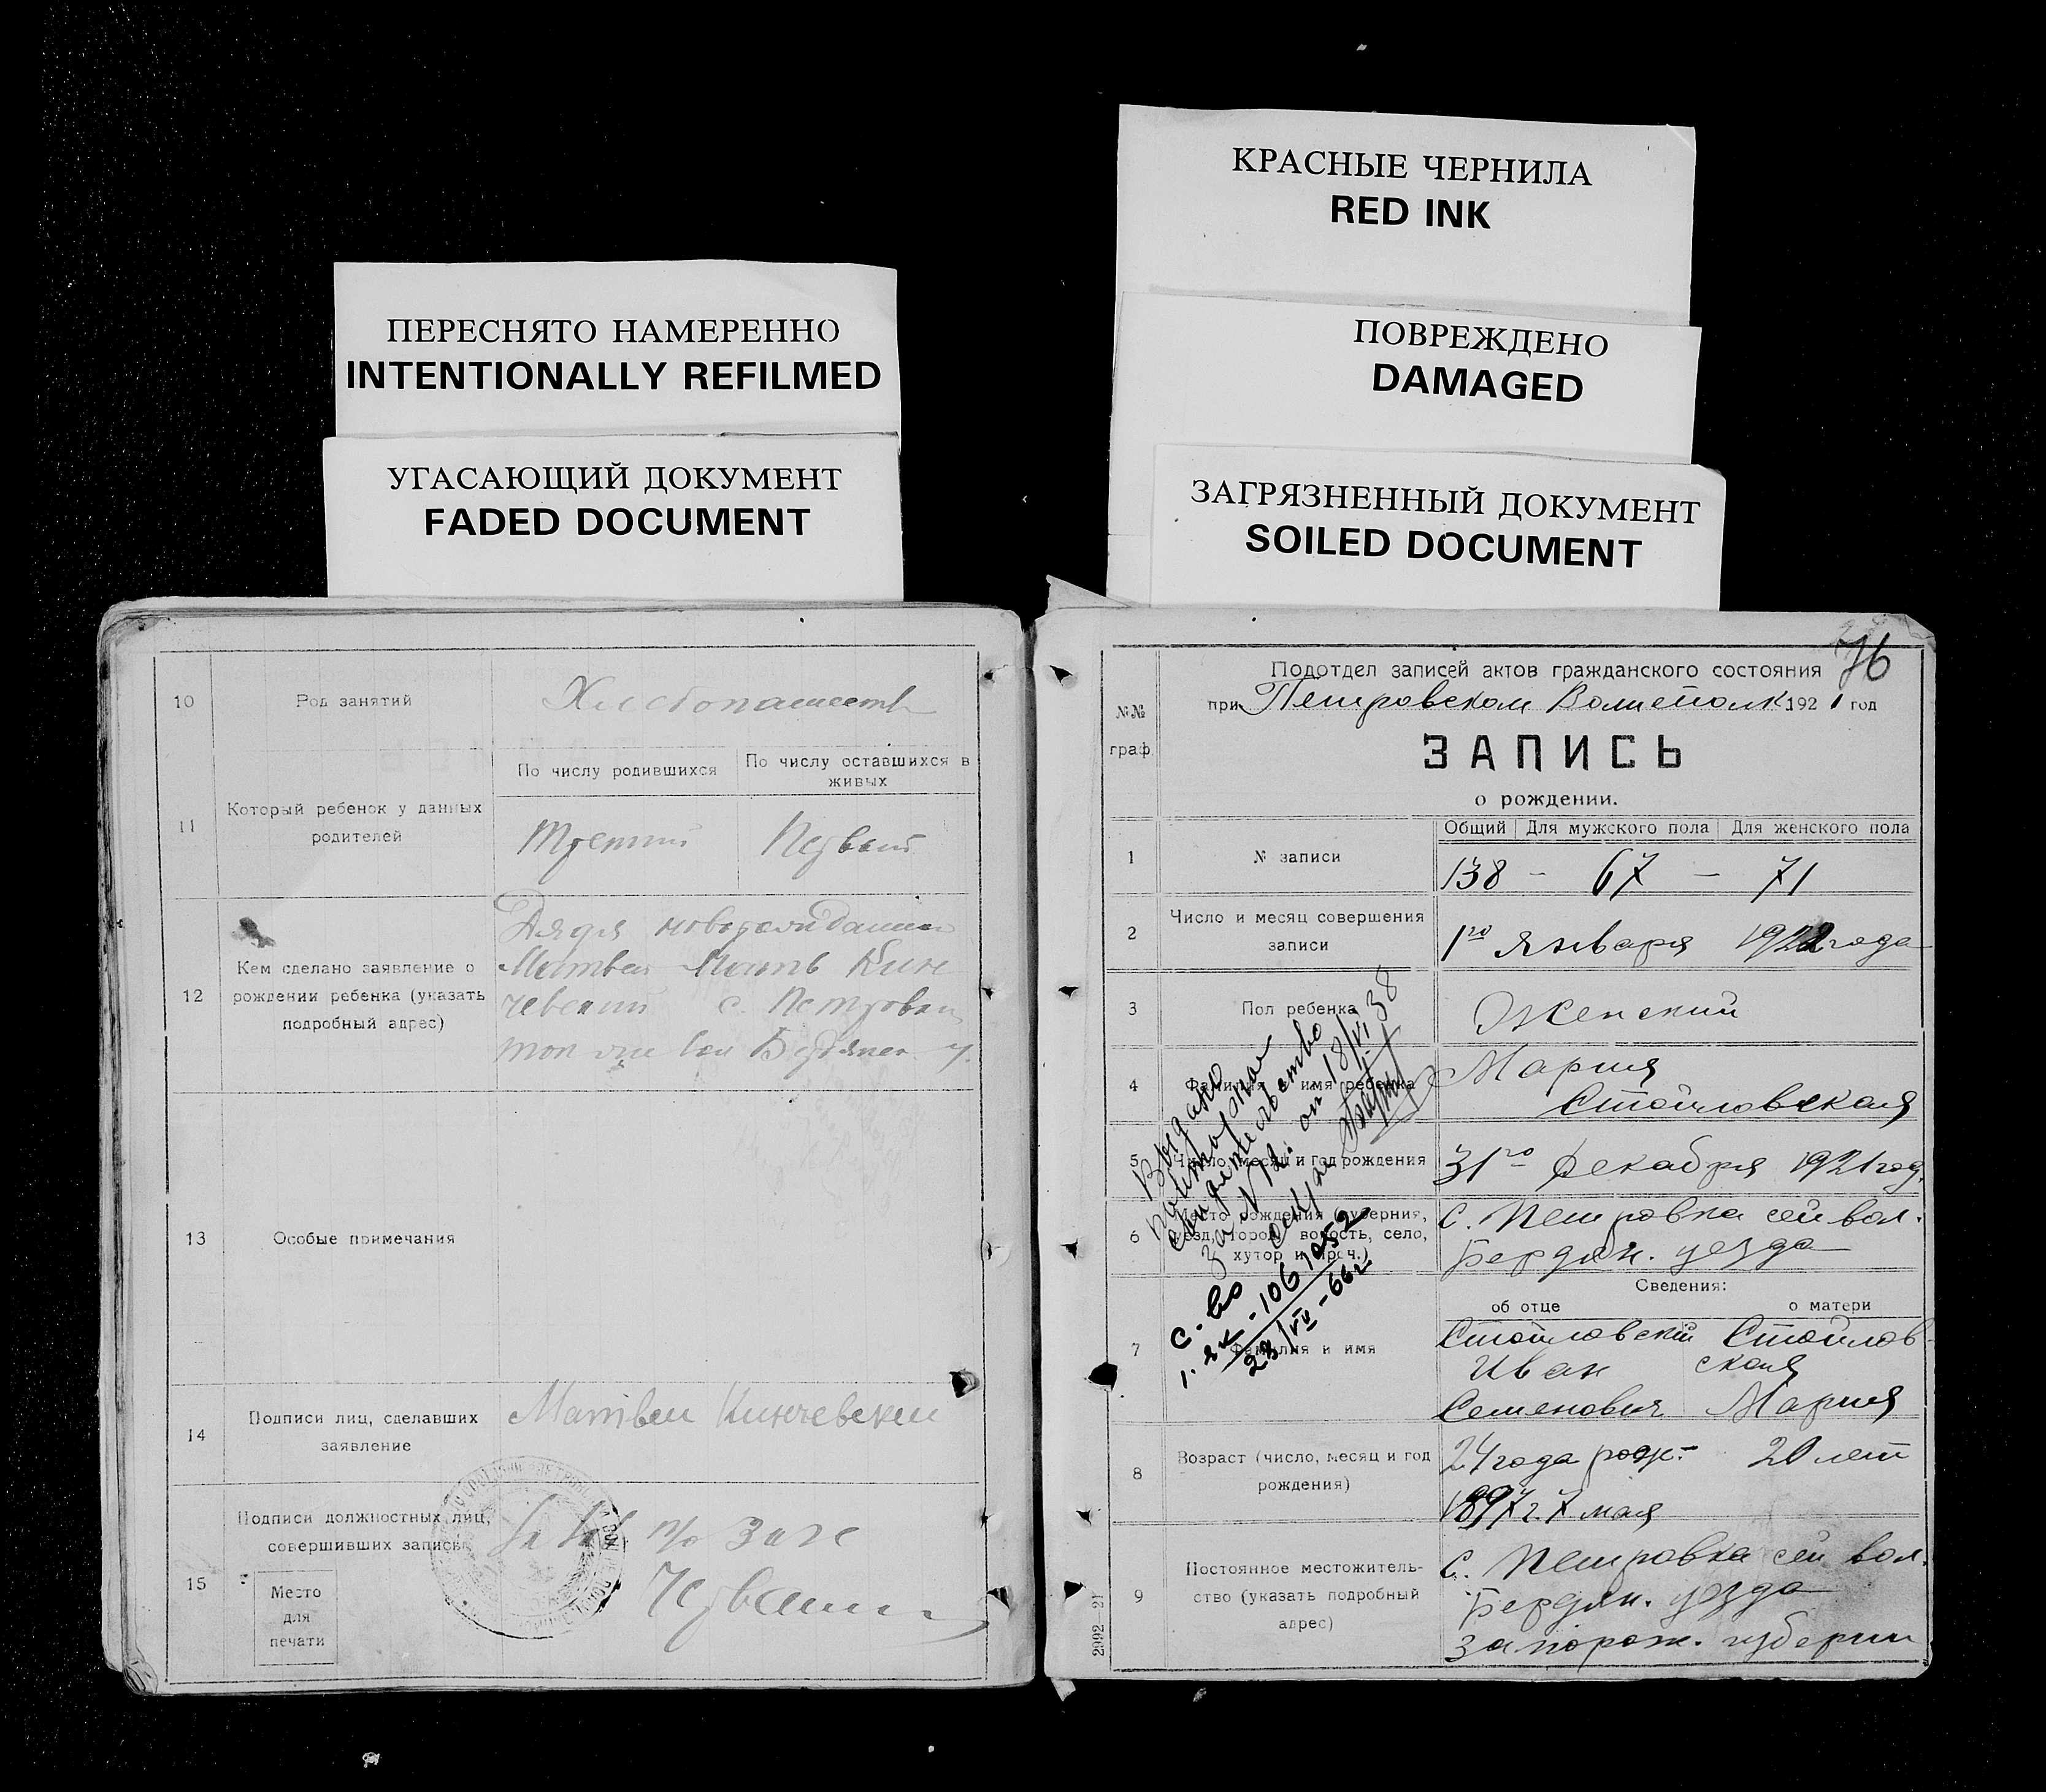 ПЕРЕСНЯТО НАМЕРЕННО
INTENTIONALLY REFILMED
УГАСАЮЩИЙ ДОКУМЕНТ
FADED DOCUMENT
10 Род занятий
11 Который ребенок у данных родителей
По числу родившихся
По числу оставшихся в живых
Третий
Первый
12 Кем сделано заявление о
рождении ребенка (указать
подробный адрес)
Дядя
Матвей
с. Петровка
13 Особые примечания
14 Подписи лиц, сделавших
заявление
Матвей Кинчевский
15 Подписи должностных лиц,
совершивших запись
Место
для
печати
КРАСНЫЕ ЧЕРНИЛА
RED INK
ПОВРЕЖДЕНО
DAMAGED
ЗАГРЯЗНЕННЫЙ ДОКУМЕНТ
SOILED DOCUMENT
76
Подотдел записей актов гражданского состояния
№№
граф.
при Петровском 1921 год
ЗАПИСЬ
о рождении.
Общий Для мужского пола Для женского пола
1 № записи 138 – 67 – 71
2 Число и месяц совершения
записи
1го Января 1922 года
3 Пол ребенка Женский
4 Фамилия и имя ребенка Мария
Стойловская
5 Число, месяц и год рождения 31го Декабря 1921 год.
6 Место рождения (губерния,
уезд, город, волость, село,
хутор и проч.)
С. Петровка сей вол.
Бердян. уезда
Сведения:
об отце о матери
7 Фамилия и имя
Стойловский
Иван
Семенович
Стойлов-
ская
Мария
8 Возраст (число, месяц и год
рождения)
24 года рож- 20 лет
1897 г. 7 мая
9 Постоянное местожитель-
ство (указать подробный
адрес)
С. Петровка сей вол.
Бердян. уезда
Запорож. губернии
Выдано
повторное
свидетельство
за № 12. от 18/VI 38
2992—21